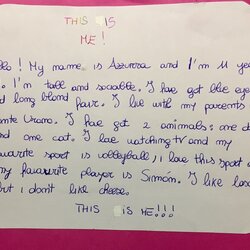 THIS IS
ME!
llo! My name is Azzurra and I'm 11 yea
. I'm tall and sociable. I have got blue eye
d long blond hair. I live with my parents
onte Urano. I have got 2 animals: one d
nd one cat. I love watching TV and my
avourite sport is volleyball; i love this sport a
my favourite player is Simón. I like
but i don't like cheese.
THIS IS ME!!!